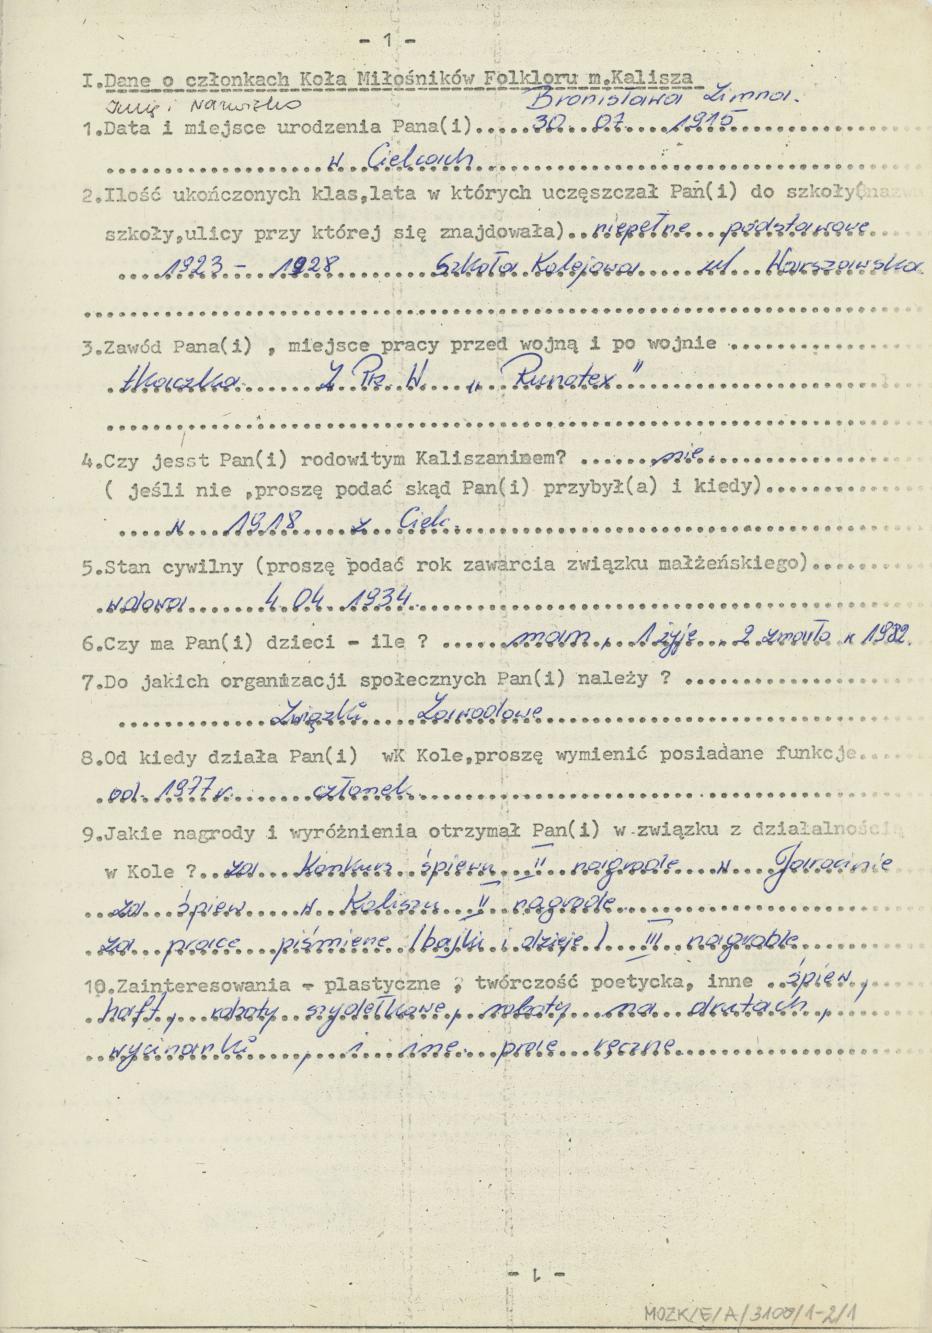 - 1 -
I.Dane o członkach Koła Miłośników Folkloru m.Kalisza
Imię i Nazwisko Bronisława Zimna.
1.Data i miejsce urodzenia Pana(i).....30 07 1915
w Cielcach
2.Ilość ukończonych klas,lata w których uczęszczał Pan(i) do szkoły(nazwa
szkoły,ulicy przy której się znajdowała)..niepełne podstawowe
1923 - 1928 Szkoła Kolejowa ul Warszawska
3.Zawód Pana(i) , miejsce pracy przed wojną i po wojnie
tkaczka Z Prz W „ Runotex"
4.Czy jesst Pan(i) rodowitym Kaliszaninem? ......nie
( jeśli nie ,proszę podać skąd Pan(i) przybył(a) i kiedy)
w 1918 z Ciele.
5.Stan cywilny (proszę podać rok zawarcia związku małżeńskiego)
wdowa 4.04 1934.
6.Czy ma Pan(i) dzieci - ile ? .....mam, 1 żyje, 2 zmarło w 1982.
7.Do jakich organizacji społecznych Pan(i) należy ?
Związki Zawodowe
8.Od kiedy działa Pan(i) wK Kole,proszę wymienić posiadane funkcje
od 1977r. członek
9.Jakie nagrody i wyróżnienia otrzymał Pan(i) w związku z działalnością
w Kole ? za Konkurs śpiewu II nagrode w Jarocinie
za śpiew w Kaliszu II nagrode
za prace piśmiene (bajki i dzieje) III nagrode
10.Zainteresowania - plastyczne , twórczość poetycka, inne ..śpiew,
haft, roboty szydełkowe, roboty na drutach,
wycinanki , i ine prace ręczne
- 1 -
MOZK/E/A/3100/1-2/1